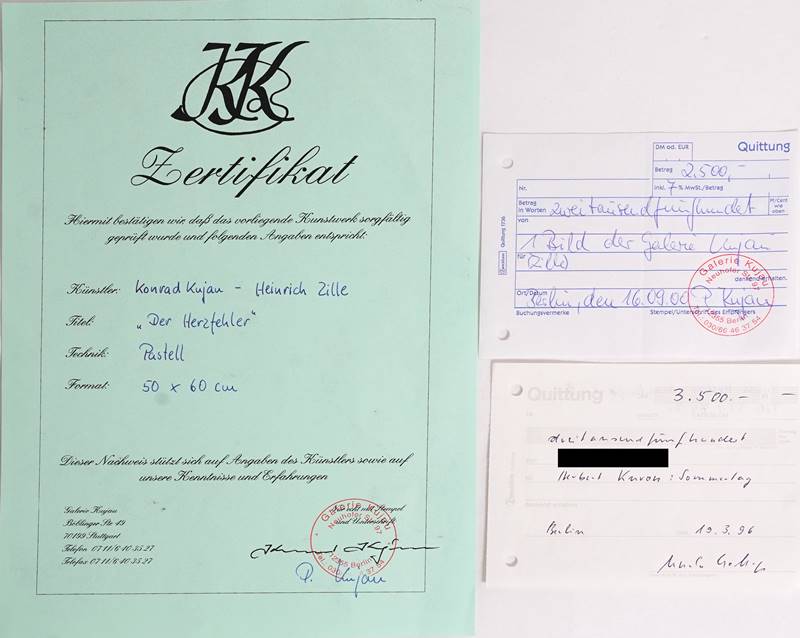 KK
Zertifikat
Hiermit bestätigen wir, daß das vorliegende Kunstwerk sorgfältig
geprüft wurde und folgenden Angaben entspricht:
Künstler: Konrad Kujau - Heinrich Zille
Titel: „Der Herzfehler"
Technik: Pastell
Format: 50 x 60 cm
Dieser Nachweis stützt sich auf Angaben des Künstlers sowie auf
unsere Kenntnisse und Erfahrungen
Galerie Kujau
70199 Stuttgart
Telefon 07 11/6 40 35 27
Telefax 07 11/6 40 35 27
und Unterschrift
Galerie Kujau
Neuhofer Str. 97
12355 Berlin
P. Kujau
DM od. EUR
Quittung
Nr.
Betrag 2.500,-
inkl. 7 % MwSt./Betrag
Betrag
in Worten zweitausendfünfhundert
von
1 Bild der Galerie Kujau
für (Zille)
dankend erhalten.
Ort/Datum Berlin, den 16.09.00 P. Kujau
Buchungsvermerke Stempel/Unterschrift des Empfängers
Galerie Kujau
Neuhofer Str. 97
12355 Berlin
Tel.: 030/66 46 37 54
Quittung
3.500.-
dreitausendfünfhundert
Berlin 19.3.96